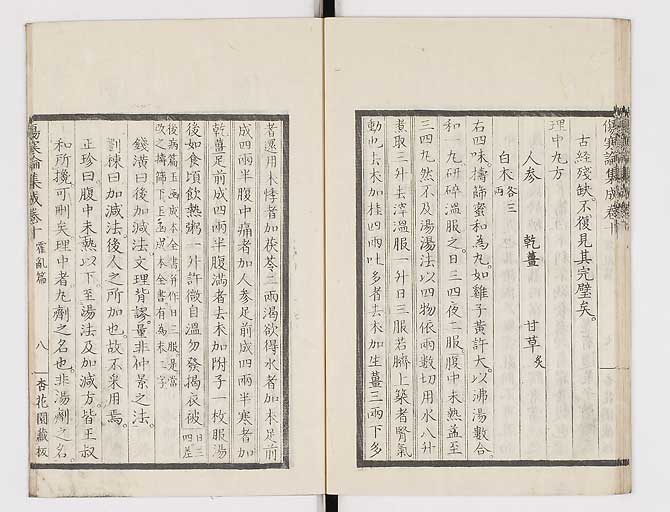 傷寒論集成卷十
古經殘缺。不復見其完璧矣。
理中丸方
人參　乾薑　甘草炙
白朮各三兩
右四味擣篩蜜和為丸。如雞子黃許大。以沸湯數合。
和一丸研碎溫服之日三四夜二服。腹中未熱益至
三四丸然不及湯湯法以四物依兩數切用水八升
煮取三升去滓溫服一升日三服若臍上築者腎氣
動也去朮加桂四兩吐多者去朮加生薑三兩下多
者還用朮悸者加茯苓二兩渴欲得水者加朮足前
成四兩半腹中痛者加人參足前成四兩半寒者加
乾薑足前成四兩半腹滿者去朮加附子一枚服湯
後如食頃飲熱粥一升許微自溫勿發揭衣被
後病篇玉函成本全書并作日三服。是當
改之擣篩下。玉函成本全書。有為末二字
錢潢曰後加減法文理背謬。量非仲景之法。
劉棟曰加減法後人之所加也。故不采用焉。
正珍曰腹中未熱以下。至湯法及加減方。皆王叔
和所攙。可刪矣理中者。丸劑之名也。非湯劑之名。
傷寒論集成卷十　霍亂篇　八　杏花園藏板